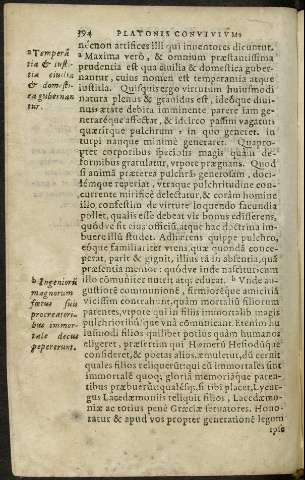 394 PLATONIS CONVIVIVM.
necnon artifices illi qui inventores dicuntur.
a Maxima verò, & omnium præstantissima
prudentia est qua ciuilia & domestica guber-
nantur, cuius nomen est temperantia atque
iustitia. Quisquis ergo virtutum huiusmodi
natura plenus & grauidus est, ideóque diui-
nus ætate debita imminente parere iam ge-
neraréque affectat, & idcirco passim vagatur
quæritque pulchrum, in quo generet. in
turpi nanque minimè generaret. Quaprop-
ter corporibus speciosis magis quàm de-
formibus gratulatur, vtpote prægnans. Quod
si animâ præterea pulchrâ, generosam, doci-
lémque reperiat, vtraque pulchritudine con-
currente mirificè delectatur, & coram homine
illo confestim de virtute loquendo facundia
pollet, qualis esse debeat vir bonus edisserens,
quódve sit eius officiũ, atque hac doctrina im-
buere illũ studet. Adhærens quippe pulchro,
eóque familiariter vtens, quæ quondã conce-
perat, parit & gignit, illius tã in absentia, quã
præsentia memor: quódve inde nascitur cum
illo cõmuniter nutrit atq; educat. b Vnde au-
gustiorē communionē, firmiorēque amicitiã
vicissim contrahunt, quàm mortaliũ filiorum
parentes, vtpote qui in filiis immortalib magis
pulchrioribúsque vnà cõmunicant. Etenim hu
iusmodi filios quilibet potiùs quàm humanos
eligeret, præsertim qui Homerũ Hesiodũque
consideret, & poëtas alios, æmuletur, dũ cernit
quales filios reliquerũt: qui cũ immortales sint
immortalē quoq; gloriã memoriãque paren-
tibus præbuerũt: qualésq; si tibi placet, Lycur-
gus Lacedæmoniis reliquit filios, Lacedæmo-
niæ ac totius penè Græciæ seruatores. Hono-
ratur & apud vos propter generationē legum
ipse
a Temperã
tia & iusti-
tia ciuilia
& domesti-
ca gubernan
tur.
b Ingeniorũ
magnorum
fœtus suis
procreatori-
bus immor-
tale decus
pepererunt.